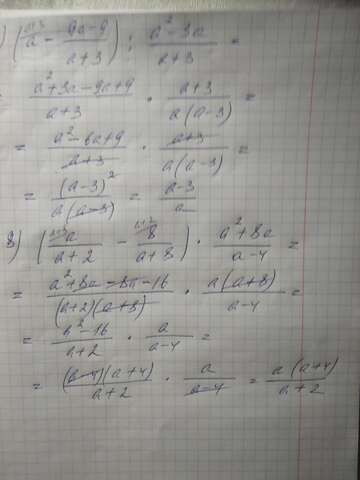 ) (a^{a+3} - (9a-9)/(a+3)) : (a²-3a)/(a+3) =
(a²+3a-9a+9)/(a+3) · (a+3)/(a(a-3)) =
= (a²-6a+9)/(a+3) · (a+3)/(a(a-3)) =
= (a-3)²/(a(a-3)) = (a-3)/a
8) (a/(a+2) - 8/(a+8)) · (a²+8a)/(a-4) =
= (a²+8a-8a-16)/((a+2)(a+8)) · a(a+8)/(a-4) =
= (a²-16)/(a+2) · a/(a-4) =
= (a-4)(a+4)/(a+2) · a/(a-4) = a(a+4)/(a+2)